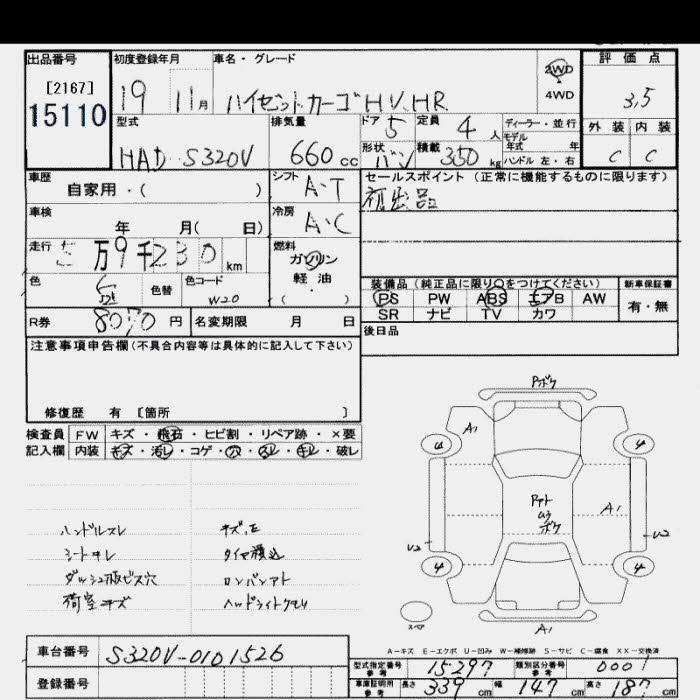 出品番号 初度登録年月 車名・グレード 2WD 評価点
[2167] 4WD
15110 19 11月 ハイゼットカーゴHV.HR 3,5
型式 排気量 ドア 5 定員 4人 ディーラー・並行 外装 内装
モデル
年式 年
HAD-S320V 660cc 形状 バン 積載 350kg ハンドル 左・右 C C
車歴 シフト セールスポイント (正常に機能するものに限ります)
自家用・( ) A・T 初出品
車検 冷房
年 月( 日) A・C
走行 万9千230km 燃料
ガソリン
色 色替 色コード 軽油 装備品 (純正品に限り○をつけてください) 新車保証書
W20 ( ・ ) PS PW ABS エアB AW 有・無
R券 8070円 名変期限 月 日 SR ナビ TV カワ
後日品
注意事項申告欄(不具合内容等は具体的に記入して下さい)
修復歴 有 [箇所 ]
検査員 FW キズ・飛石・ヒビ割・リペア跡・×要
記入欄 内装 キズ・汚レ・コゲ・穴・スレ・キレ・破レ
Pボケ
A1
4 4
ハンドルスレ キズ,E
シートキレ タイヤ積込
ダッシュ板ビス穴
荷室キズ ヘッドライトクモリ
ボケ
A1
U2 U2
4 4
スペア A1
A-キズ E-エクボ U-凹み W-補修跡 S-サビ C-腐食 XX-交換済
車台番号 S320V-0101526 型式指定番号 参考 15297 類別区分番号 参考 0001
登録番号 車庫証明用 参考 長さ 339cm 幅 147cm 高さ 187cm